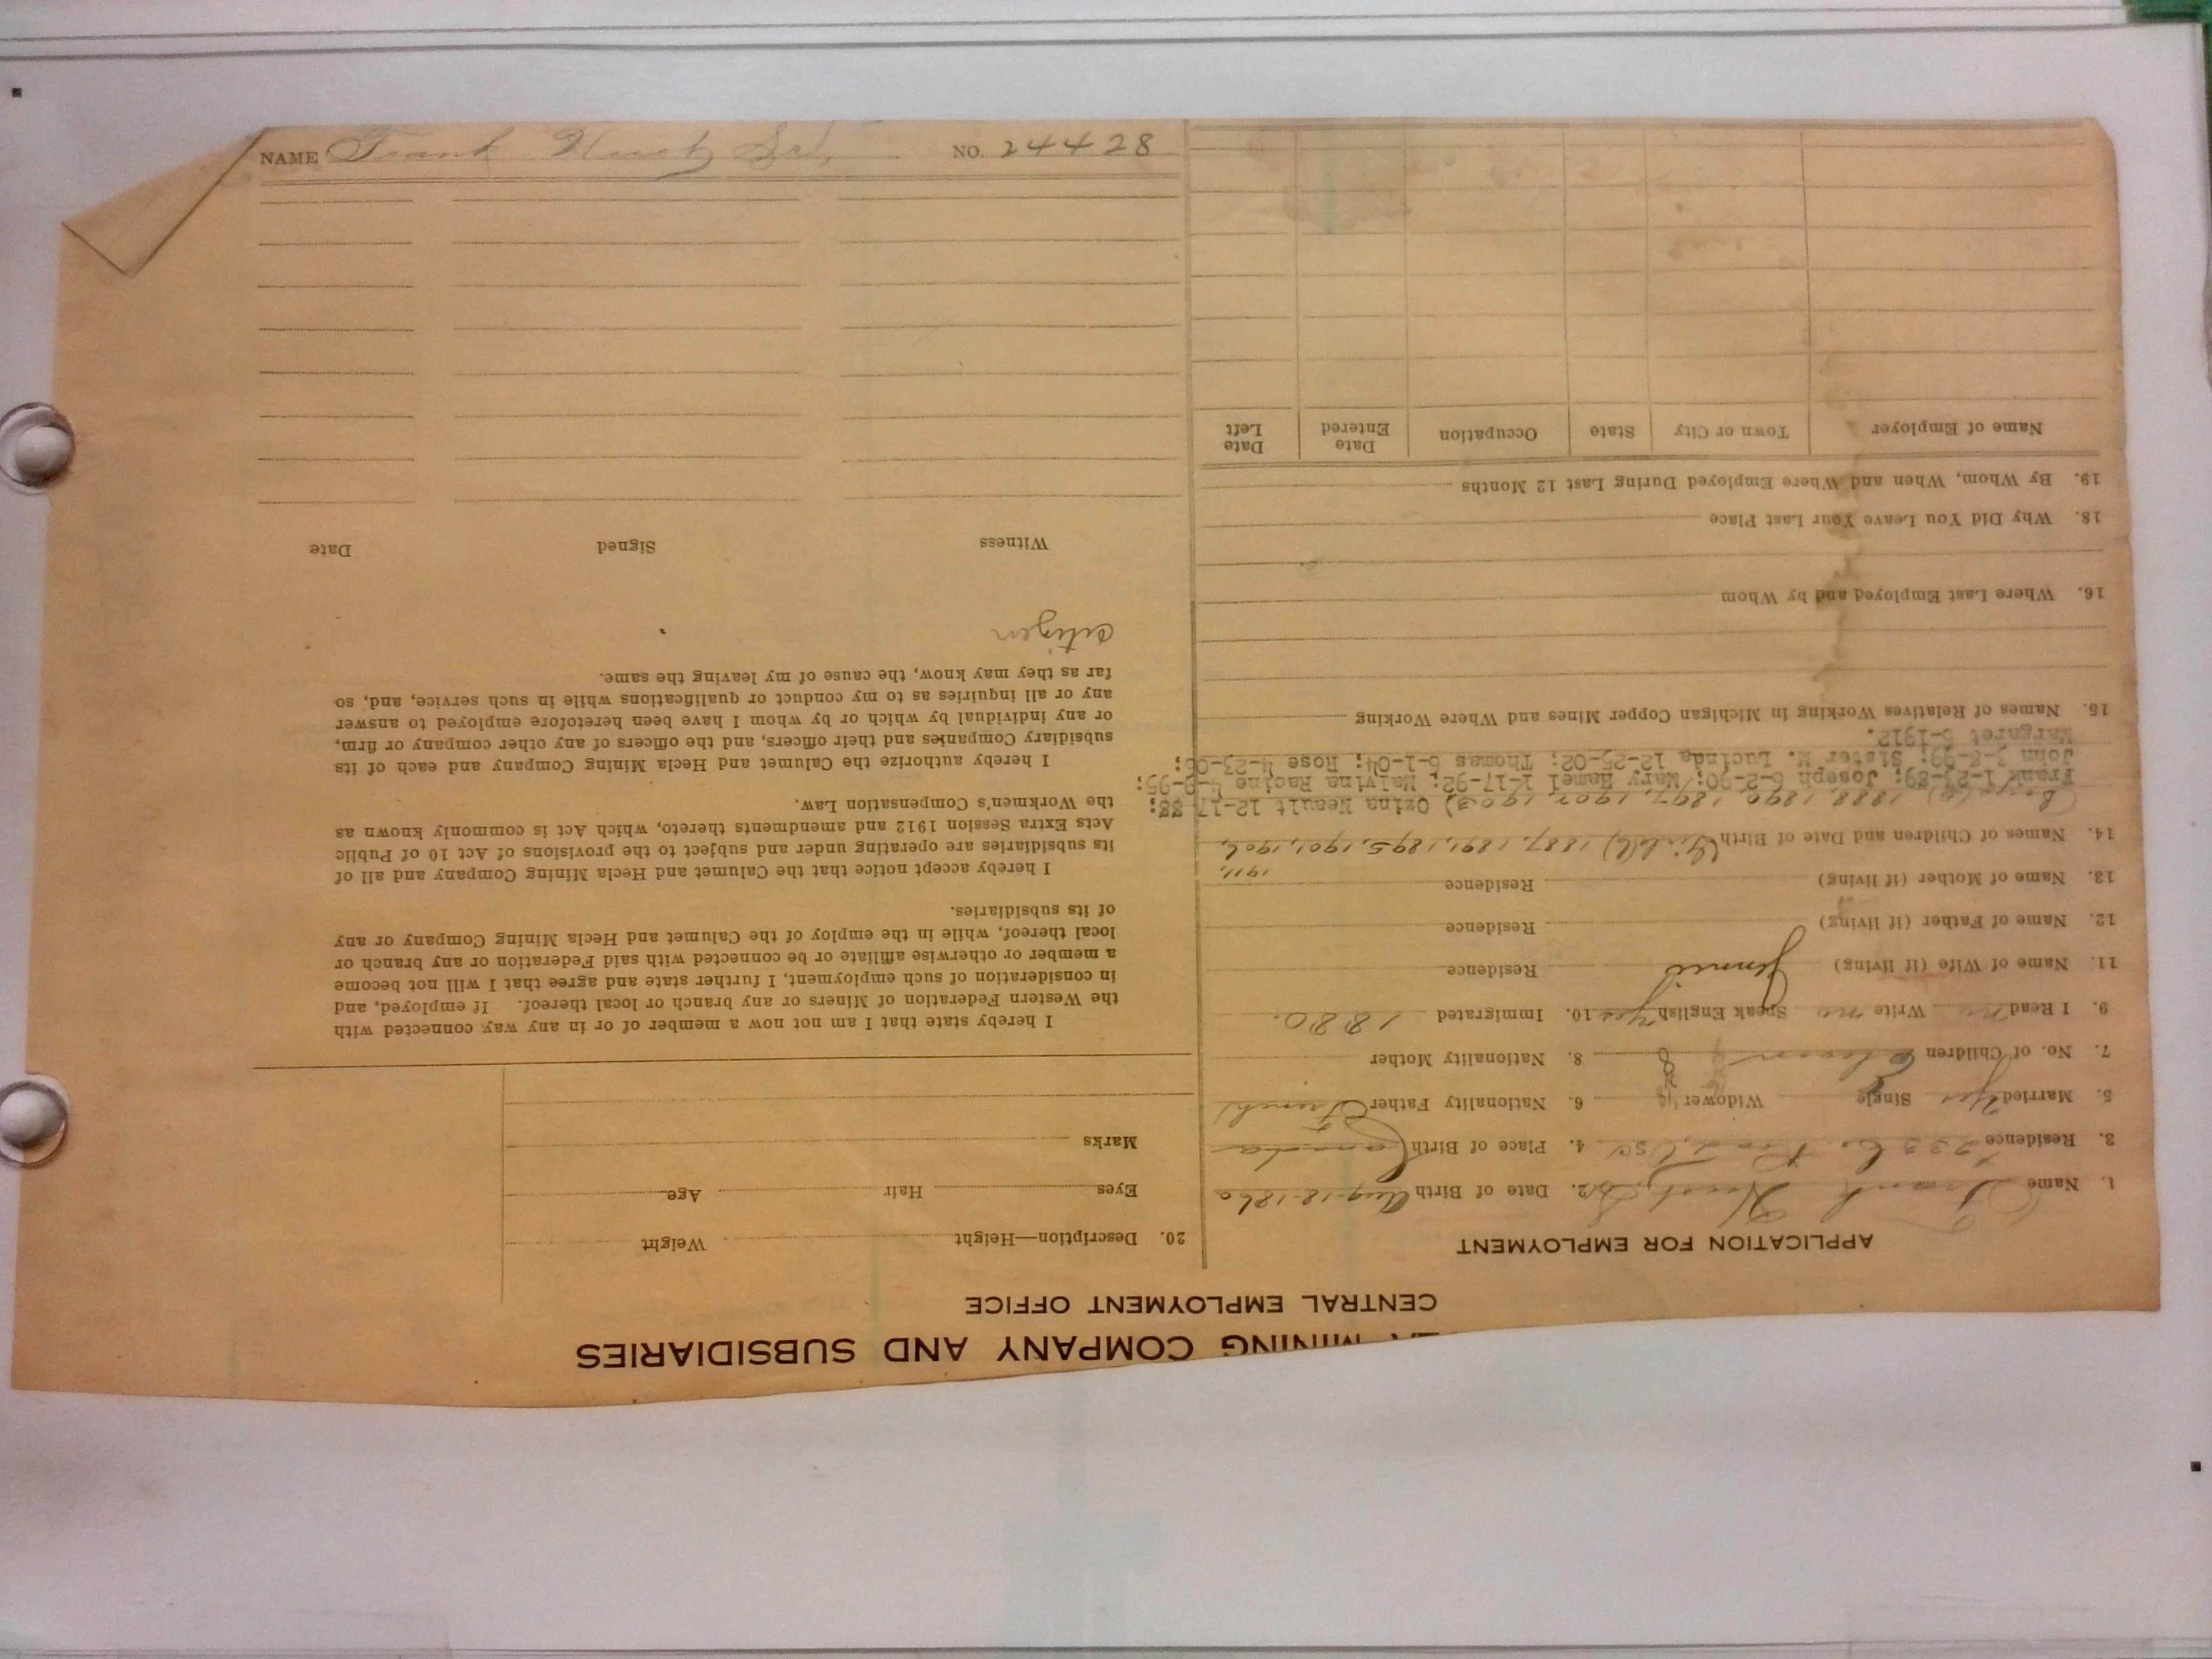 MINING COMPANY AND SUBSIDIARIES
CENTRAL EMPLOYMENT OFFICE
APPLICATION FOR EMPLOYMENT
1. Name Frank Sr. 2. Date of Birth Aug-18-1860
3. Residence 4. Place of Birth Canada
5. Married Yes Single Widower 6. Nationality Father French
7. No. of Children 8. Nationality Mother
9. I Read no Write no Speak English yes 10. Immigrated 1880.
11. Name of Wife (if living) Jennie Residence
12. Name of Father (if living) Residence
13. Name of Mother (if living) Residence
1911,
14. Names of Children and Date of Birth (Girls (6) 1887, 1891, 1895, 1901, 1906,
Boys (5) 1888, 1890, 1897, 1902, 1903) Ozina Neault 12-17-88;
Frank 1-23-89; Joseph 6-2-90; Mary Hamel 1-17-92; Malvina Racine 4-9-95;
John 3-8-99; Sister M. Lucinda 12-25-02; Thomas 6-1-04; Rose 4-23-06;
Margaret 6-1912.
15. Names of Relatives Working in Michigan Copper Mines and Where Working
16. Where Last Employed and by Whom
18. Why Did You Leave Your Last Place
19. By Whom, When and Where Employed During Last 12 Months
Name of Employer Town or City State Occupation Date Entered Date Left
20. Description—Height Weight
Eyes Hair Age
Marks
I hereby state that I am not now a member of or in any way connected with
the Western Federation of Miners or any branch or local thereof. If employed, and
in consideration of such employment, I further state and agree that I will not become
a member or otherwise affiliate or be connected with said Federation or any branch or
local thereof, while in the employ of the Calumet and Hecla Mining Company or any
of its subsidiaries.
I hereby accept notice that the Calumet and Hecla Mining Company and all of
its subsidiaries are operating under and subject to the provisions of Act 10 of Public
Acts Extra Session 1912 and amendments thereto, which Act is commonly known as
the Workmen's Compensation Law.
I hereby authorize the Calumet and Hecla Mining Company and each of its
subsidiary Companies and their officers, and the officers of any other company or firm,
or any individual by which or by whom I have been heretofore employed to answer
any or all inquiries as to my conduct or qualifications while in such service, and, so
far as they may know, the cause of my leaving the same.
citizen
Witness Signed Date
NAME Frank Sr. NO. 24428